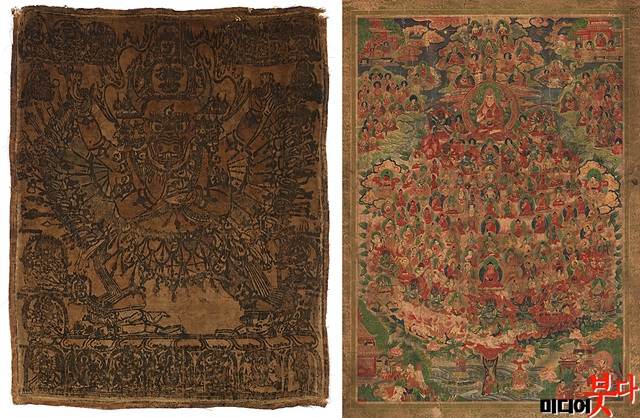 미디어 붓다